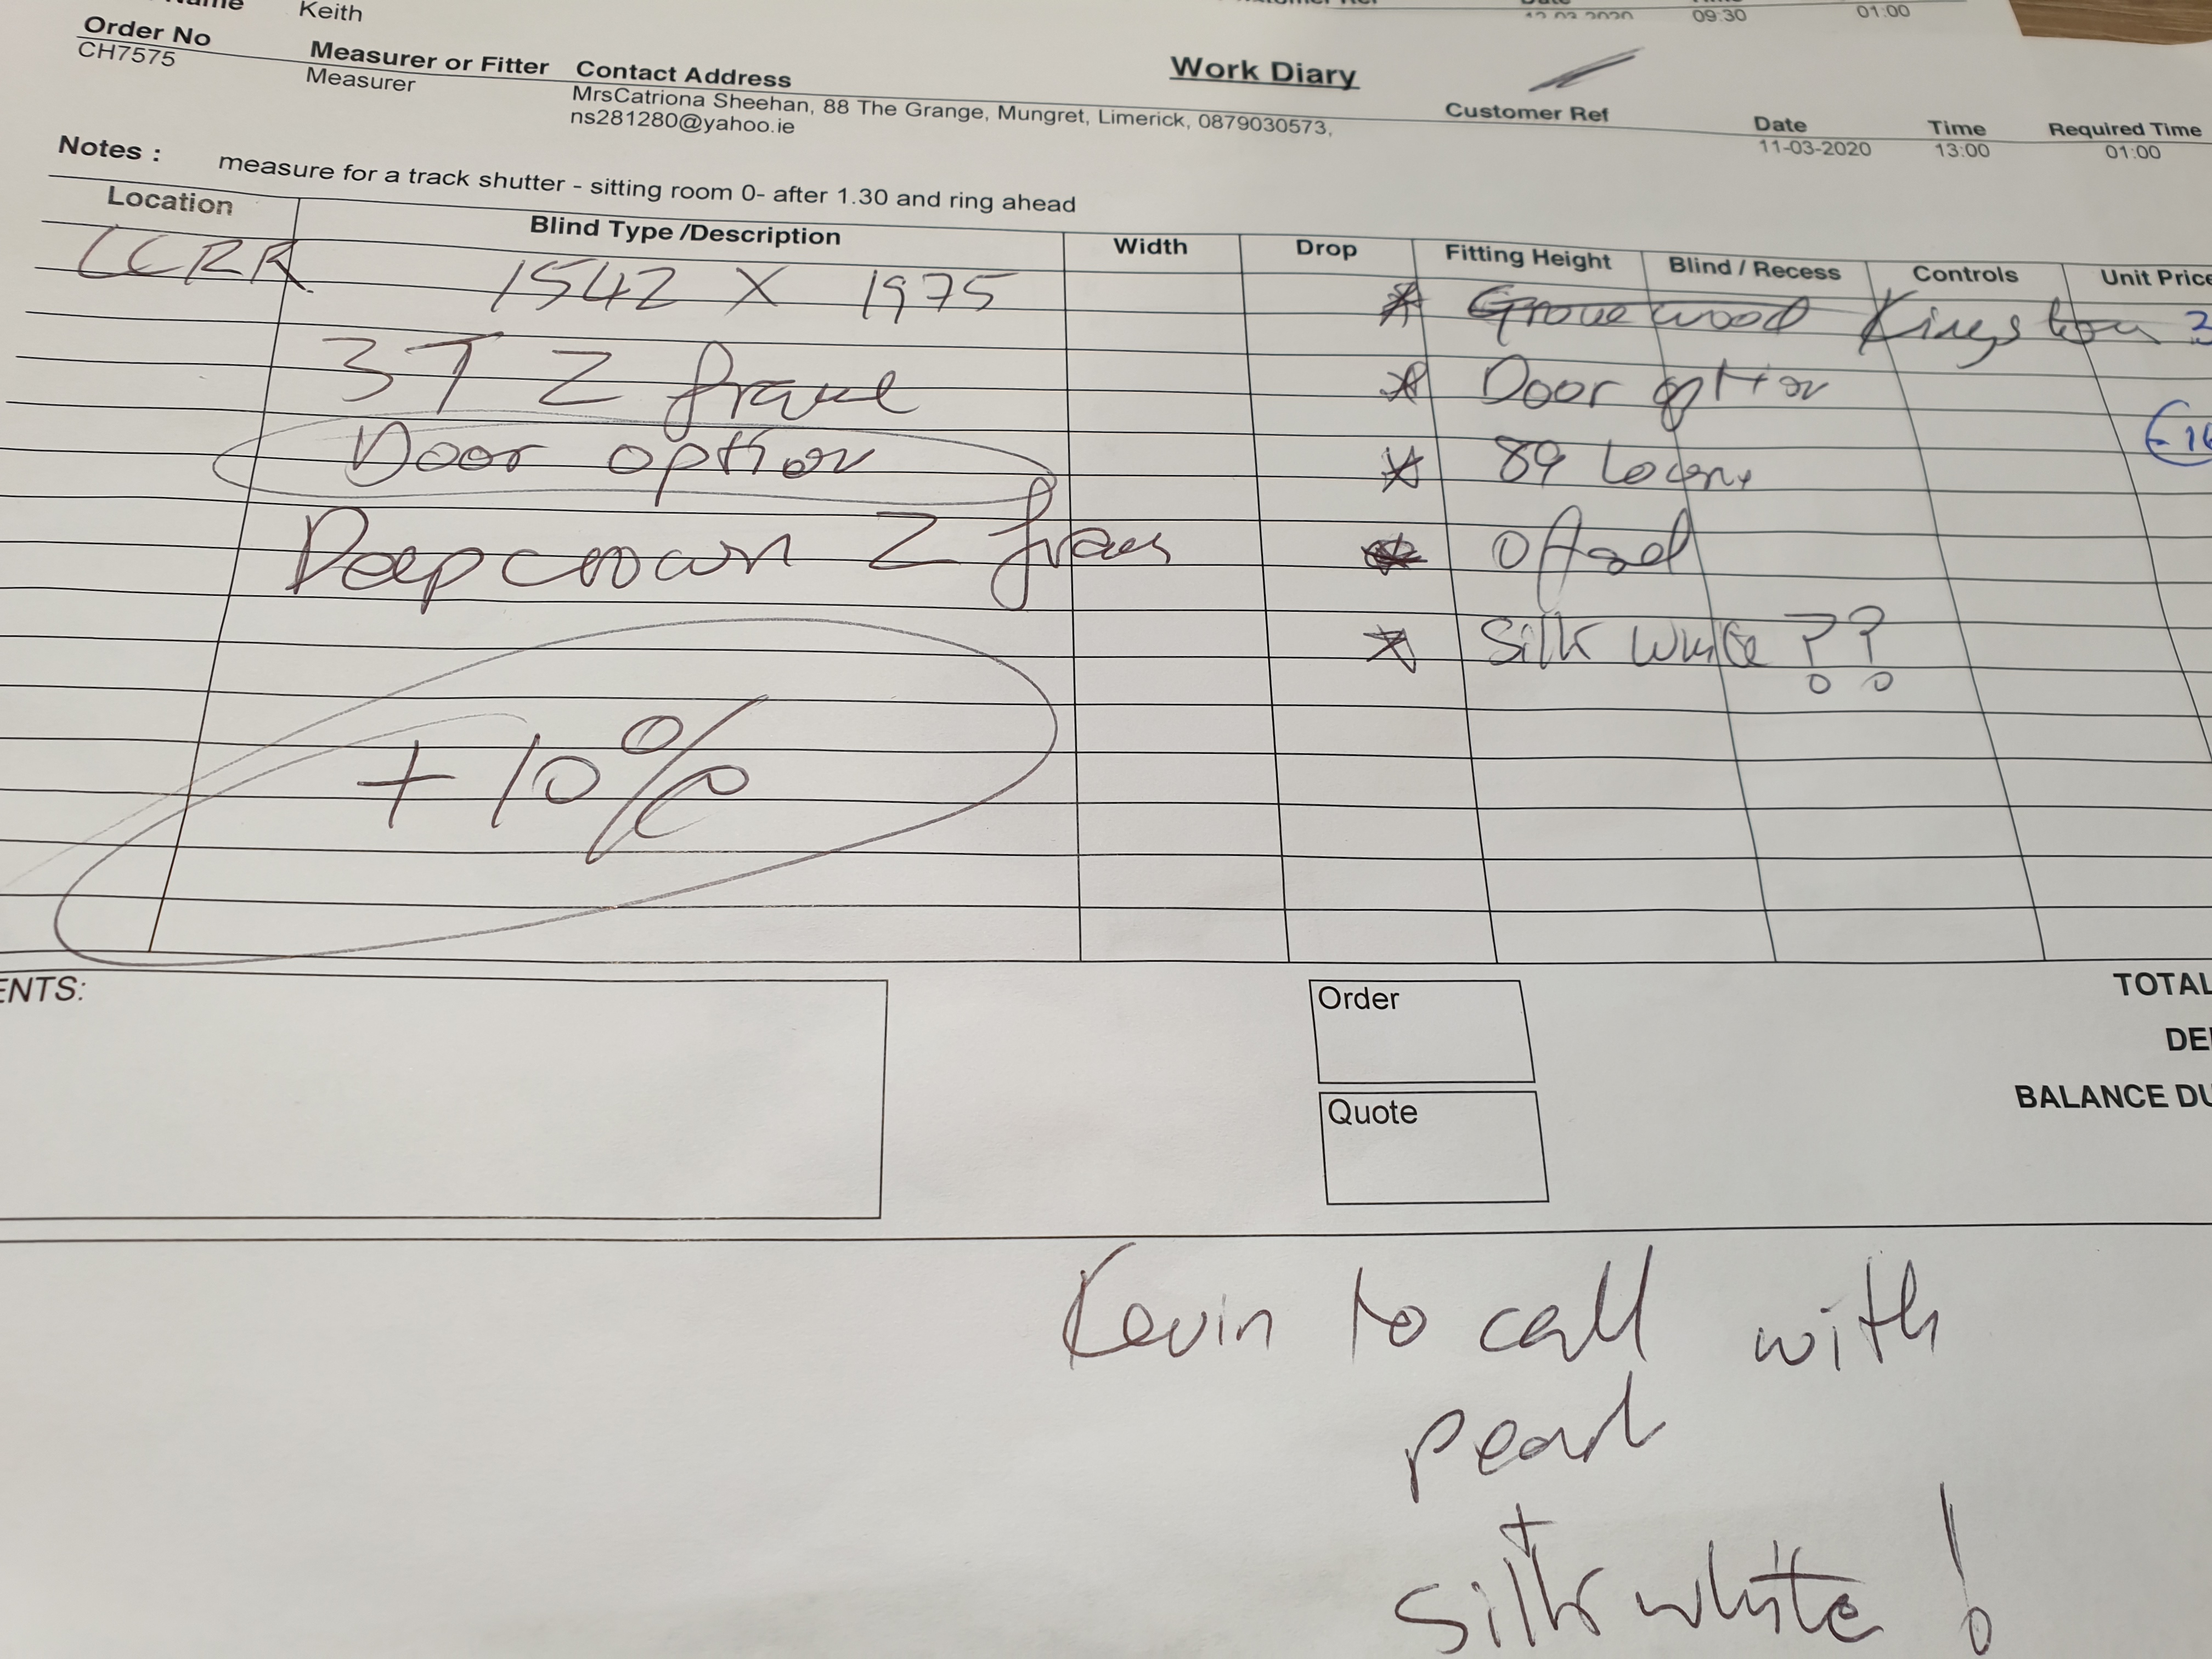 Keith
12-03-2020 09:30 01:00
Work Diary
Order No Measurer or Fitter Contact Address Customer Ref Date Time Required Time
CH7575 Measurer MrsCatriona Sheehan, 88 The Grange, Mungret, Limerick, 0879030573, 11-03-2020 13:00 01:00
ns281280@yahoo.ie
Notes : measure for a track shutter - sitting room 0- after 1.30 and ring ahead
Location Blind Type /Description Width Drop Fitting Height Blind / Recess Controls Unit Price
LCRR 1542 X 1975 * Grovewood Kingston
3T Z frame * Door option
Door option * 89 Louvre
Deep crown Z frame * Offset
* Silk White ??
+10%
ENTS:
Order
Quote
TOTAL
DE
BALANCE DU
Kevin to call with
pearl
+
silk white !